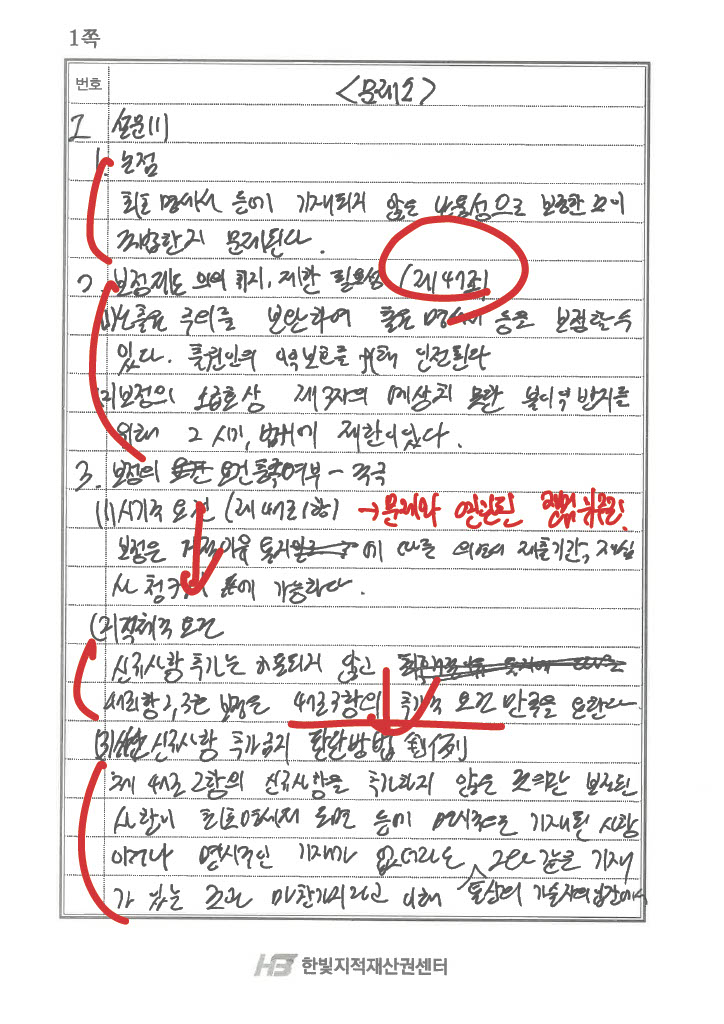 1쪽
번호
<문제 2>
I 설문(1)
1. 논점
최초 명세서 등에 기재되지 않은 내용성으로 보정한 것이
적법한지 문제된다.
2. 보정제도 의의 취지, 제한 필요성 (제47조)
(1) 선출원 주의를 보완하여 출원 명세서 등을 보정할 수
있다. 출원인의 이익보호를 위해 인정된다
(2) 보정의 소급효상 제3자의 예상치 못한 불이익 방지를
위해 그 시기, 범위에 제한이 있다.
3. 보정의 요건 충족여부 - 적극
(1) 시기적 요건 (제47조1항) → 문제와 연결된
보정은 거절이유 통지 에 따른 의견서 제출기간, 재심
사 청구시 등에 가능하다.
(2) 객체적 요건
신규사항 추가는 허용되지 않고
보정은 47조3항의 추가적 요건 만족을 요한다.
(3) 신규사항 추가금지 판단방법 (判例)
제47조2항의 신규사항을 추가하지 않은 것이란 보정된
사항이 최초명세서 도면 등에 명시적으로 기재된 사항
이거나 명시적인 기재가 없더라도 그와 같은 기재
가 있는 것과 마찬가지라고 이해 통상의 기술자의 입장에서
HB 한빛지적재산권센터